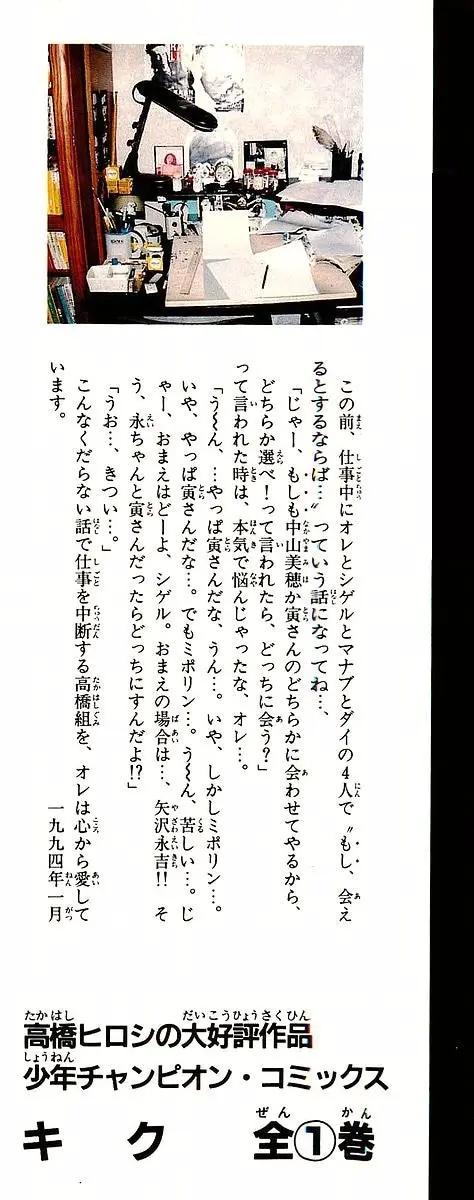 この前、仕事中にオレとシゲルとマナブとダイの4人で〝もし、会え
るとするならば…〟っていう話になってね…、
「じゃー、もしも中山美穂か寅さんのどちらかに会わせてやるから、
どちらか選べ!って言われたら、どっちに会う?」
って言われた時は、本気で悩んじゃったな、オレ…。
「う〜ん、…やっぱ寅さんだな、うん…。いや、しかしミポリン…。
いや、やっぱ寅さんだな…。でもミポリン…。う〜ん、苦しい…。じ
ゃー、おまえはどーよ、シゲル。おまえの場合は…、矢沢永吉!!そ
う、永ちゃんと寅さんだったらどっちにすんだよ!?」
「うお…、きつい…。」
こんなくだらない話で仕事を中断する高橋組を、オレは心から愛して
います。
一九九四年一月
高橋ヒロシの大好評作品
少年チャンピオン・コミックス
キク 全①巻